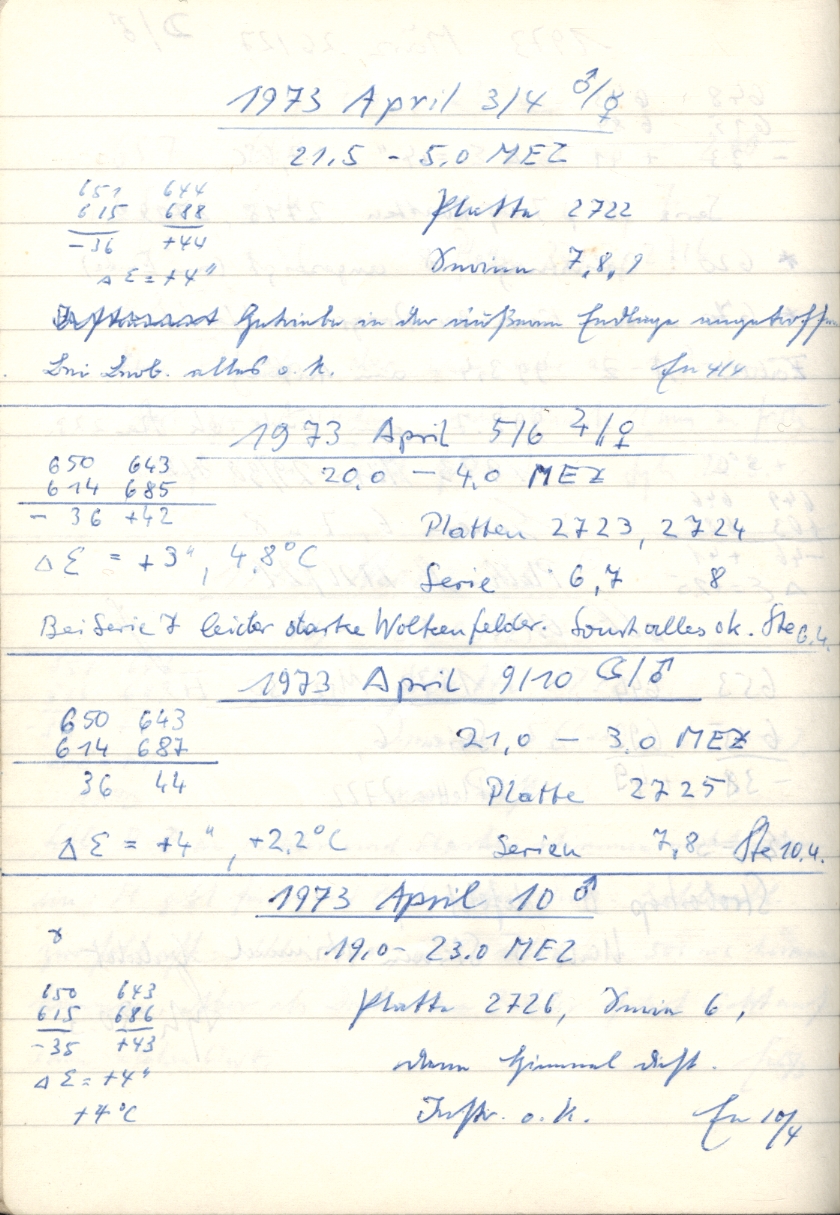 1973 April 3/4 ♂/☿
21,5 - 5,0 MEZ
651 644
615 688
-36 +44
Platte 2722
Serien 7,8,9
Δ Ɛ = +4"
Getriebe in der äußeren Endlage angetroffen
Bei Beob. alles o.k. En 4/4
1973 April 5/6 ♃/♀
20,0 - 4,0 MEZ
650 643
614 685
- 36 +42
Platten 2723, 2724
Δ Ɛ = +3", 4.8°C
Serie 6,7 8
Bei Serie 7 leider starke Wolkenfelder. Sonst alles ok. Ste 6.4.
1973 April 9/10 ☾/♂
650 643
614 687
36 44
21,0 - 3,0 MEZ
Platte 2725
Δ Ɛ = +4", +2.2°C
Serien 7,8 Ste 10.4.
1973 April 10 ♂
19,0 - 23,0 MEZ
650 643
615 686
-35 +43
Platte 2726, Serie 6,
Δ Ɛ = +4"
dann Himmel dicht.
+4°C
Instr. o.k. En 10/4